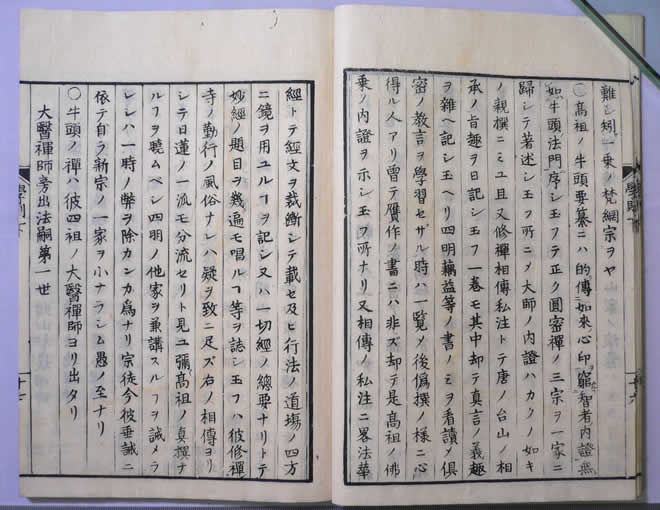 難シ矧一乗ノ梵網宗ヲヤ
○高祖ノ牛頭要纂ニハ的傳如来心印竆智者内證無
如牛頭法門ト序シ玉フテ正ク圓密禅ノ三宗ヲ一家ニ
歸シテ著述シ玉フ所ニメ大師ノ内證ハカクノ如キ
ノ親撰ニミユ且又修禅相傳私注トテ唐ノ台山ノ相
承ノ旨趣ヲ日記シ玉フ一巻モ其中却テ真言ノ義趣
ヲ雜ヘ記シ玉ヘリ四明藕益等ノ書ノミヲ看讀メ俱
密ノ教言ヲ學習セザル時ハ一覽メ後偽撰ノ様ニ心
得ル人アリ曽テ贋作ノ書ニハ非ズ却テ是高祖ノ佛
乗ノ内證ヲ示シ玉フ所ナリ又相傳ノ私注ニ畧法華
經トテ經文ヲ裁断シテ載セ及ヒ行法ノ道場ノ四方
ニ鏡ヲ用ユルヿヲ記シ又ハ一切經ノ總要ナリトテ
妙經ノ題目ヲ幾遍モ唱ルヿ等ヲ誌シ玉フハ彼修禅
寺ノ勤行ノ風俗ナレハ疑ヲ致ニ足ズ右ノ相傳ヨリ
シテ日蓮ノ一流モ分流セリト見ユ彌髙祖ノ真撰ナ
ルヿヲ曉ムベシ四明ノ他家ヲ兼講スルヿヲ誡メラ
レシハ一時ノ弊ヲ除カンカ為ナリ宗徒今彼垂誡ニ
依テ自ラ新宗ノ一家ヲ小ナラシム愚ノ至ナリ
○牛頭ノ禅ハ彼四祖ノ大醫禅師ヨリ出タリ
大醫禅師旁出法嗣第一世
學則下
十七